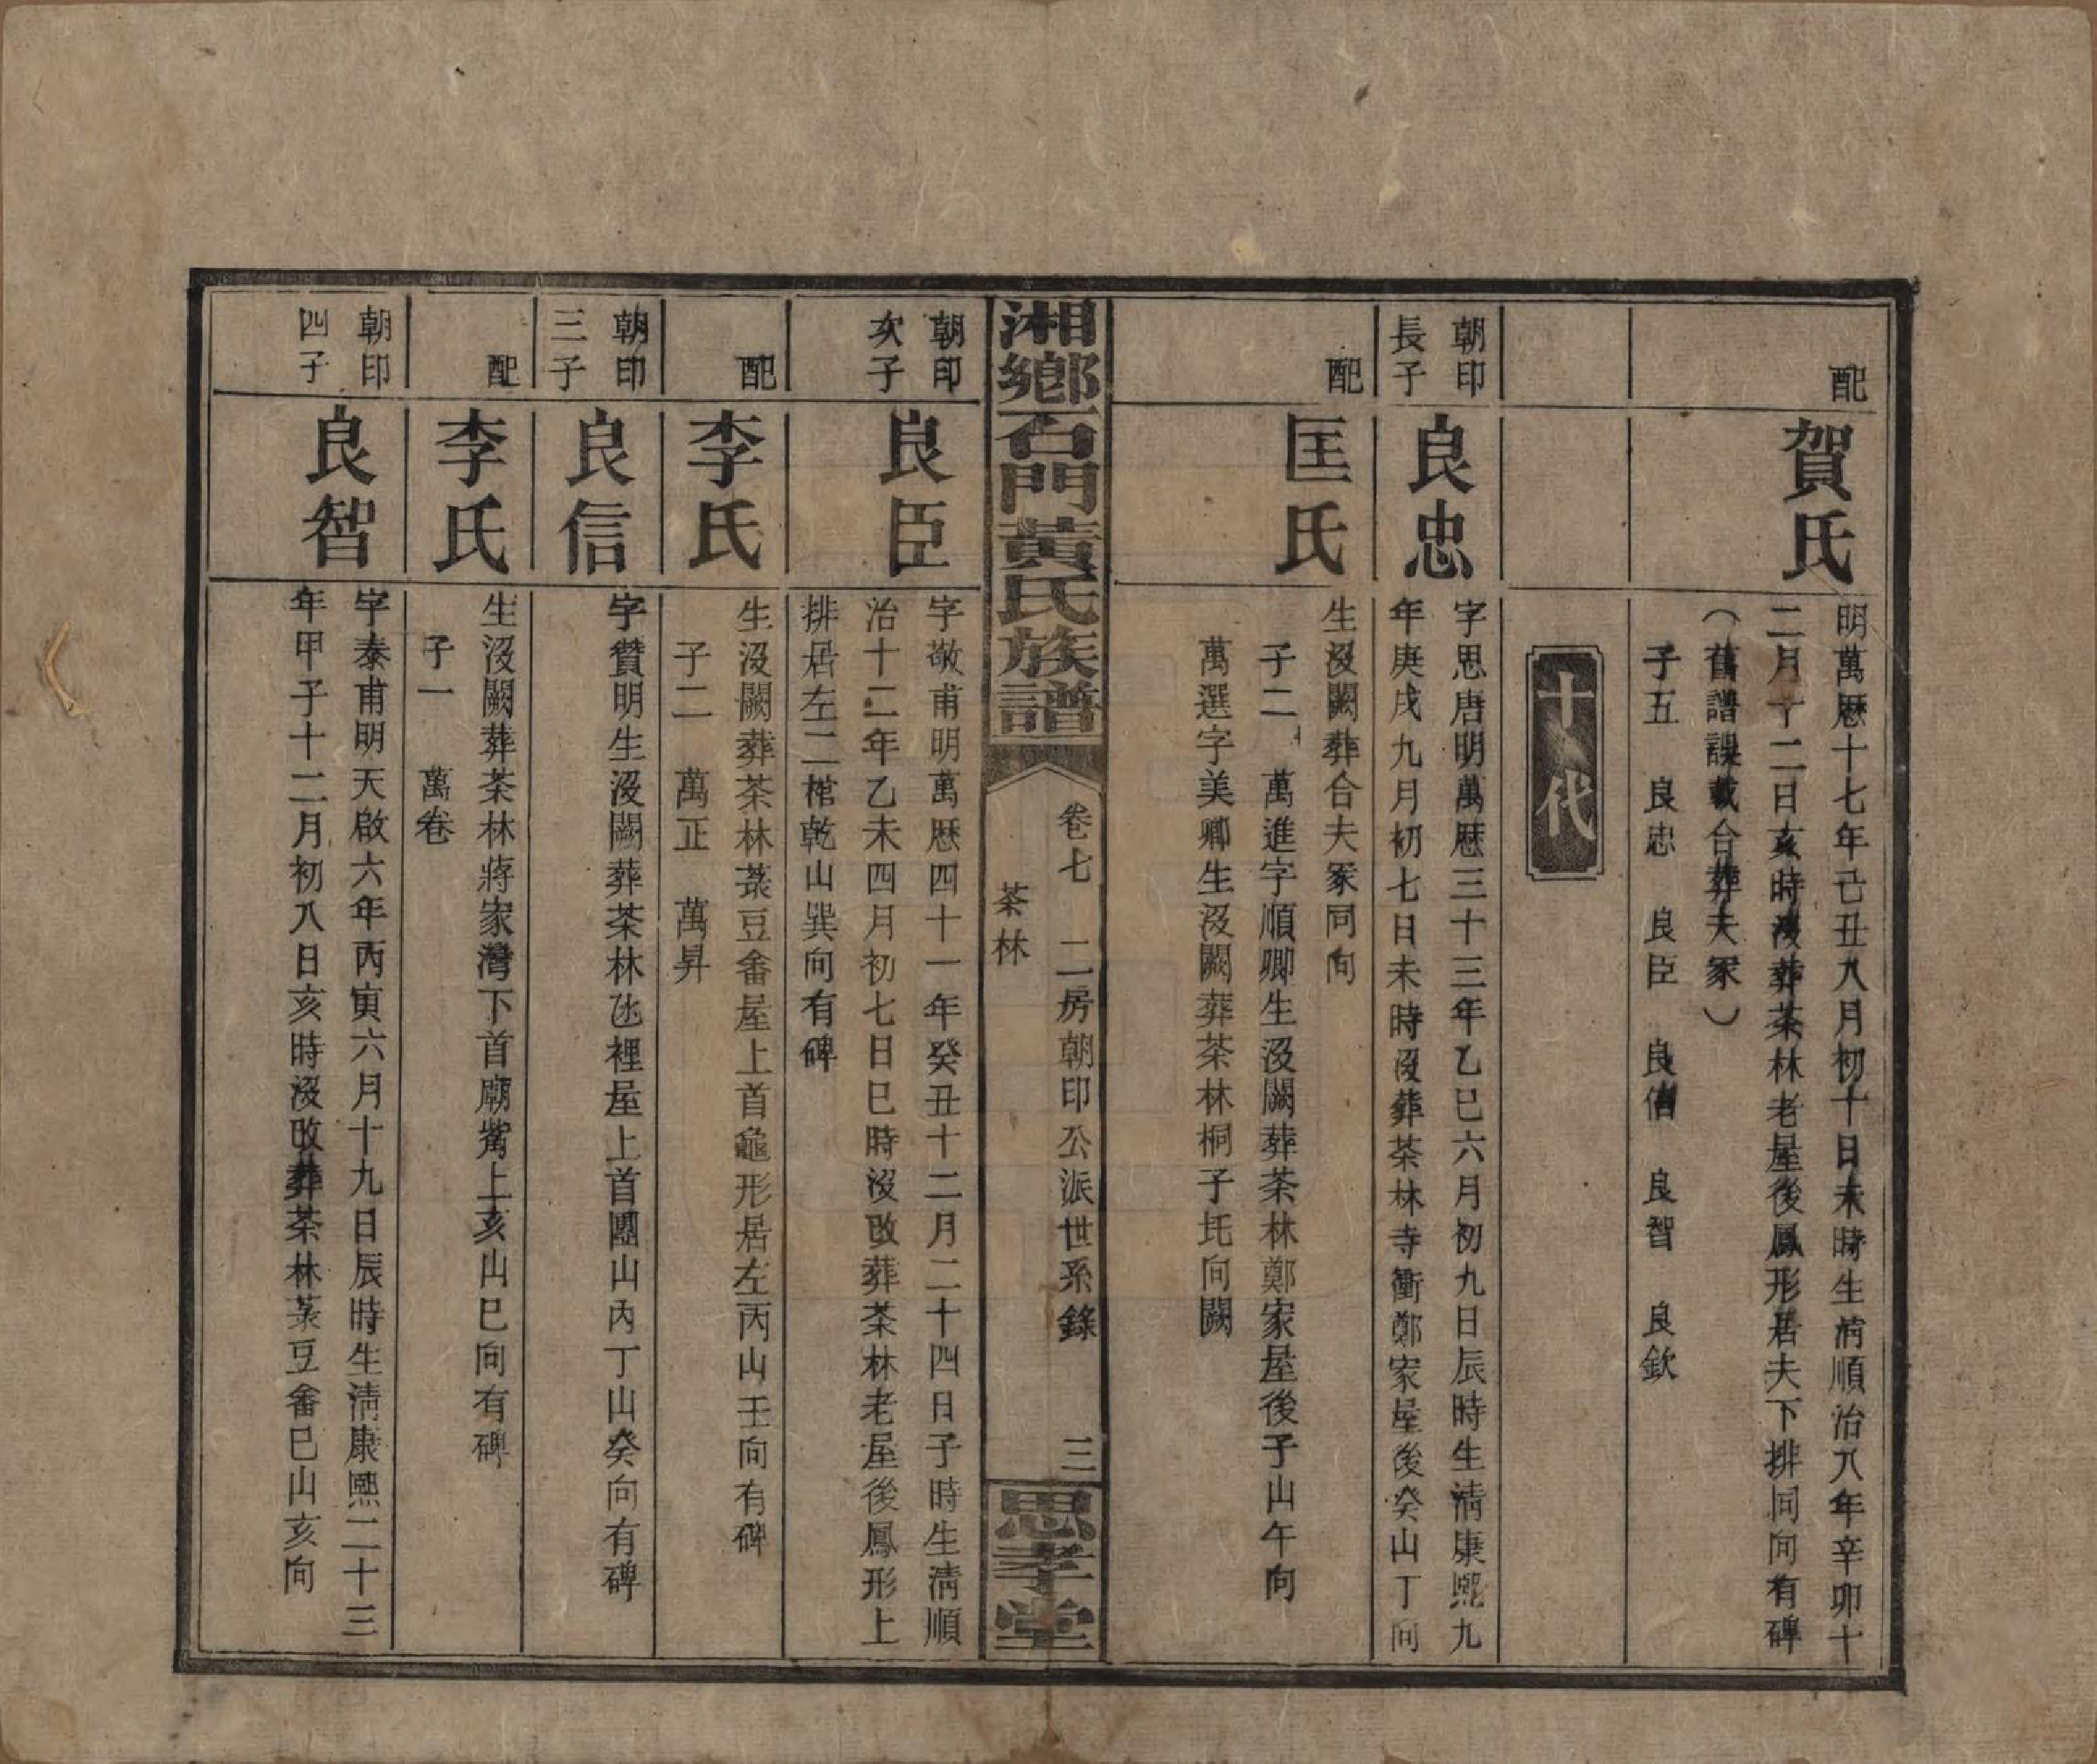 配
賀氏
明萬厯十七年己丑八月初十日未時生清順治八年辛卯十
二月十二日亥時沒葬茶林老屋後鳳形居夫下排同向有碑
（舊譜誤載合葬夫冢）
子五　良忠　良臣　良信　良智　良欽
十代
朝印
長子
良忠
字思唐明萬厯三十三年乙巳六月初九日辰時生清康熙九
年庚戌九月初七日未時沒葬茶林寺衝鄭家屋後癸山丁向
配
匡氏
生沒闕葬合夫冢同向
子二　萬進字順卿生沒闕葬茶林鄭家屋後子山午向
萬選字美卿生沒闕葬茶林桐子圫向闕
湘鄉石門黃氏族譜
卷七　二房朝印公派世系錄　三
茶林
思孝堂
朝印
次子
良臣
字敬甫明萬厯四十一年癸丑十二月二十四日子時生清順
治十二年乙未四月初七日巳時沒改葬茶林老屋後鳳形上
排居左二棺乾山巽向有碑
配
李氏
生沒闕葬茶林菉豆畬屋上首龜形居左丙山壬向有碑
子二　萬正　萬昇
朝印
三子
良信
字贊明生沒闕葬茶林氹裡屋上首團山內丁山癸向有碑
配
李氏
生沒闕葬茶林蔣家灣下首廟嘴上亥山巳向有碑
子一　萬卷
朝印
四子
良智
字泰甫明天啟六年丙寅六月十九日辰時生清康熙二十三
年甲子十二月初八日亥時沒改葬茶林菉豆畬巳山亥向